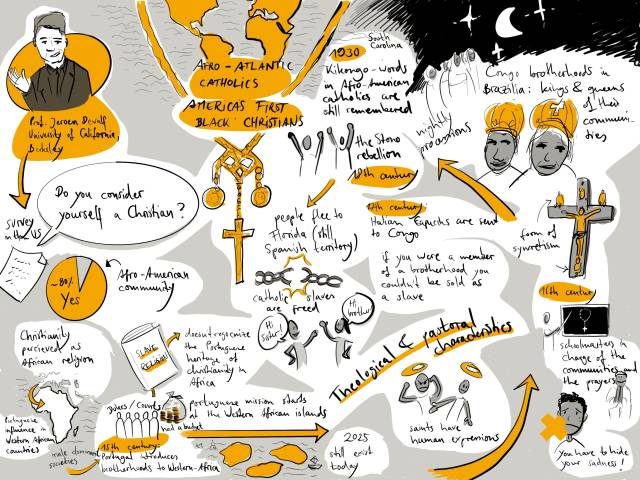 AFRO-ATLANTIC
CATHOLICS
AMERICAS FIRST
BLACK CHRISTIANS
Prof. Jeroen Dewulf
University of California,
Berkeley
survey
in the US
Do you consider
yourself a Christian?
~80%
Yes
Afro-American
community
Christianity
percieved as
African religion
Portuguese
influence in
Western African
countries
male dominant
societies
SLAVE
RELIGION
doesn't recognize
the Portuguese
heritage of
christianity in
Africa
Dukes/Counts
had a budget
portuguese mission starts
at the Western African islands
15th century:
Portugal introduces
brotherhoods to Western-Africa
2025
still exist
today
1930
South
Carolina
Kikongo-words
in Afro-American
catholics are
still remembered
the Stono
rebellion
18th century
people flee to
Florida (still
Spanish territory)
catholic slaves
are freed
Hi
sister!
Hi
brother!
17th century:
Italian Capuchs are sent
to Congo
if you were a member
of a brotherhood you
couldn't be sold as
a slave
Theological & pastoral
characteristics
saints have
human expressions
nightly
processions
Congo brotherhoods in
Brazilia: kings & queens
of their
communi-
ties
form of
syncretism
16th century
schoolmasters in
charge of the
communities and
the prayers
you have to hide
your sadness!